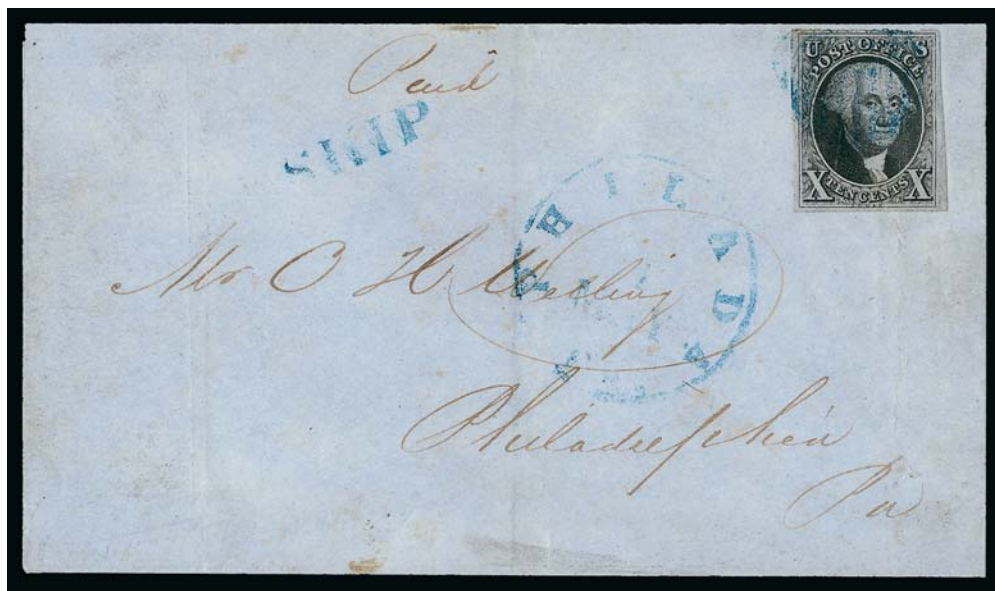 Paid
SHIP
U S
POST OFFICE
X TEN CENTS X
PHILADA
Mr O H
Philadelphia
Pa